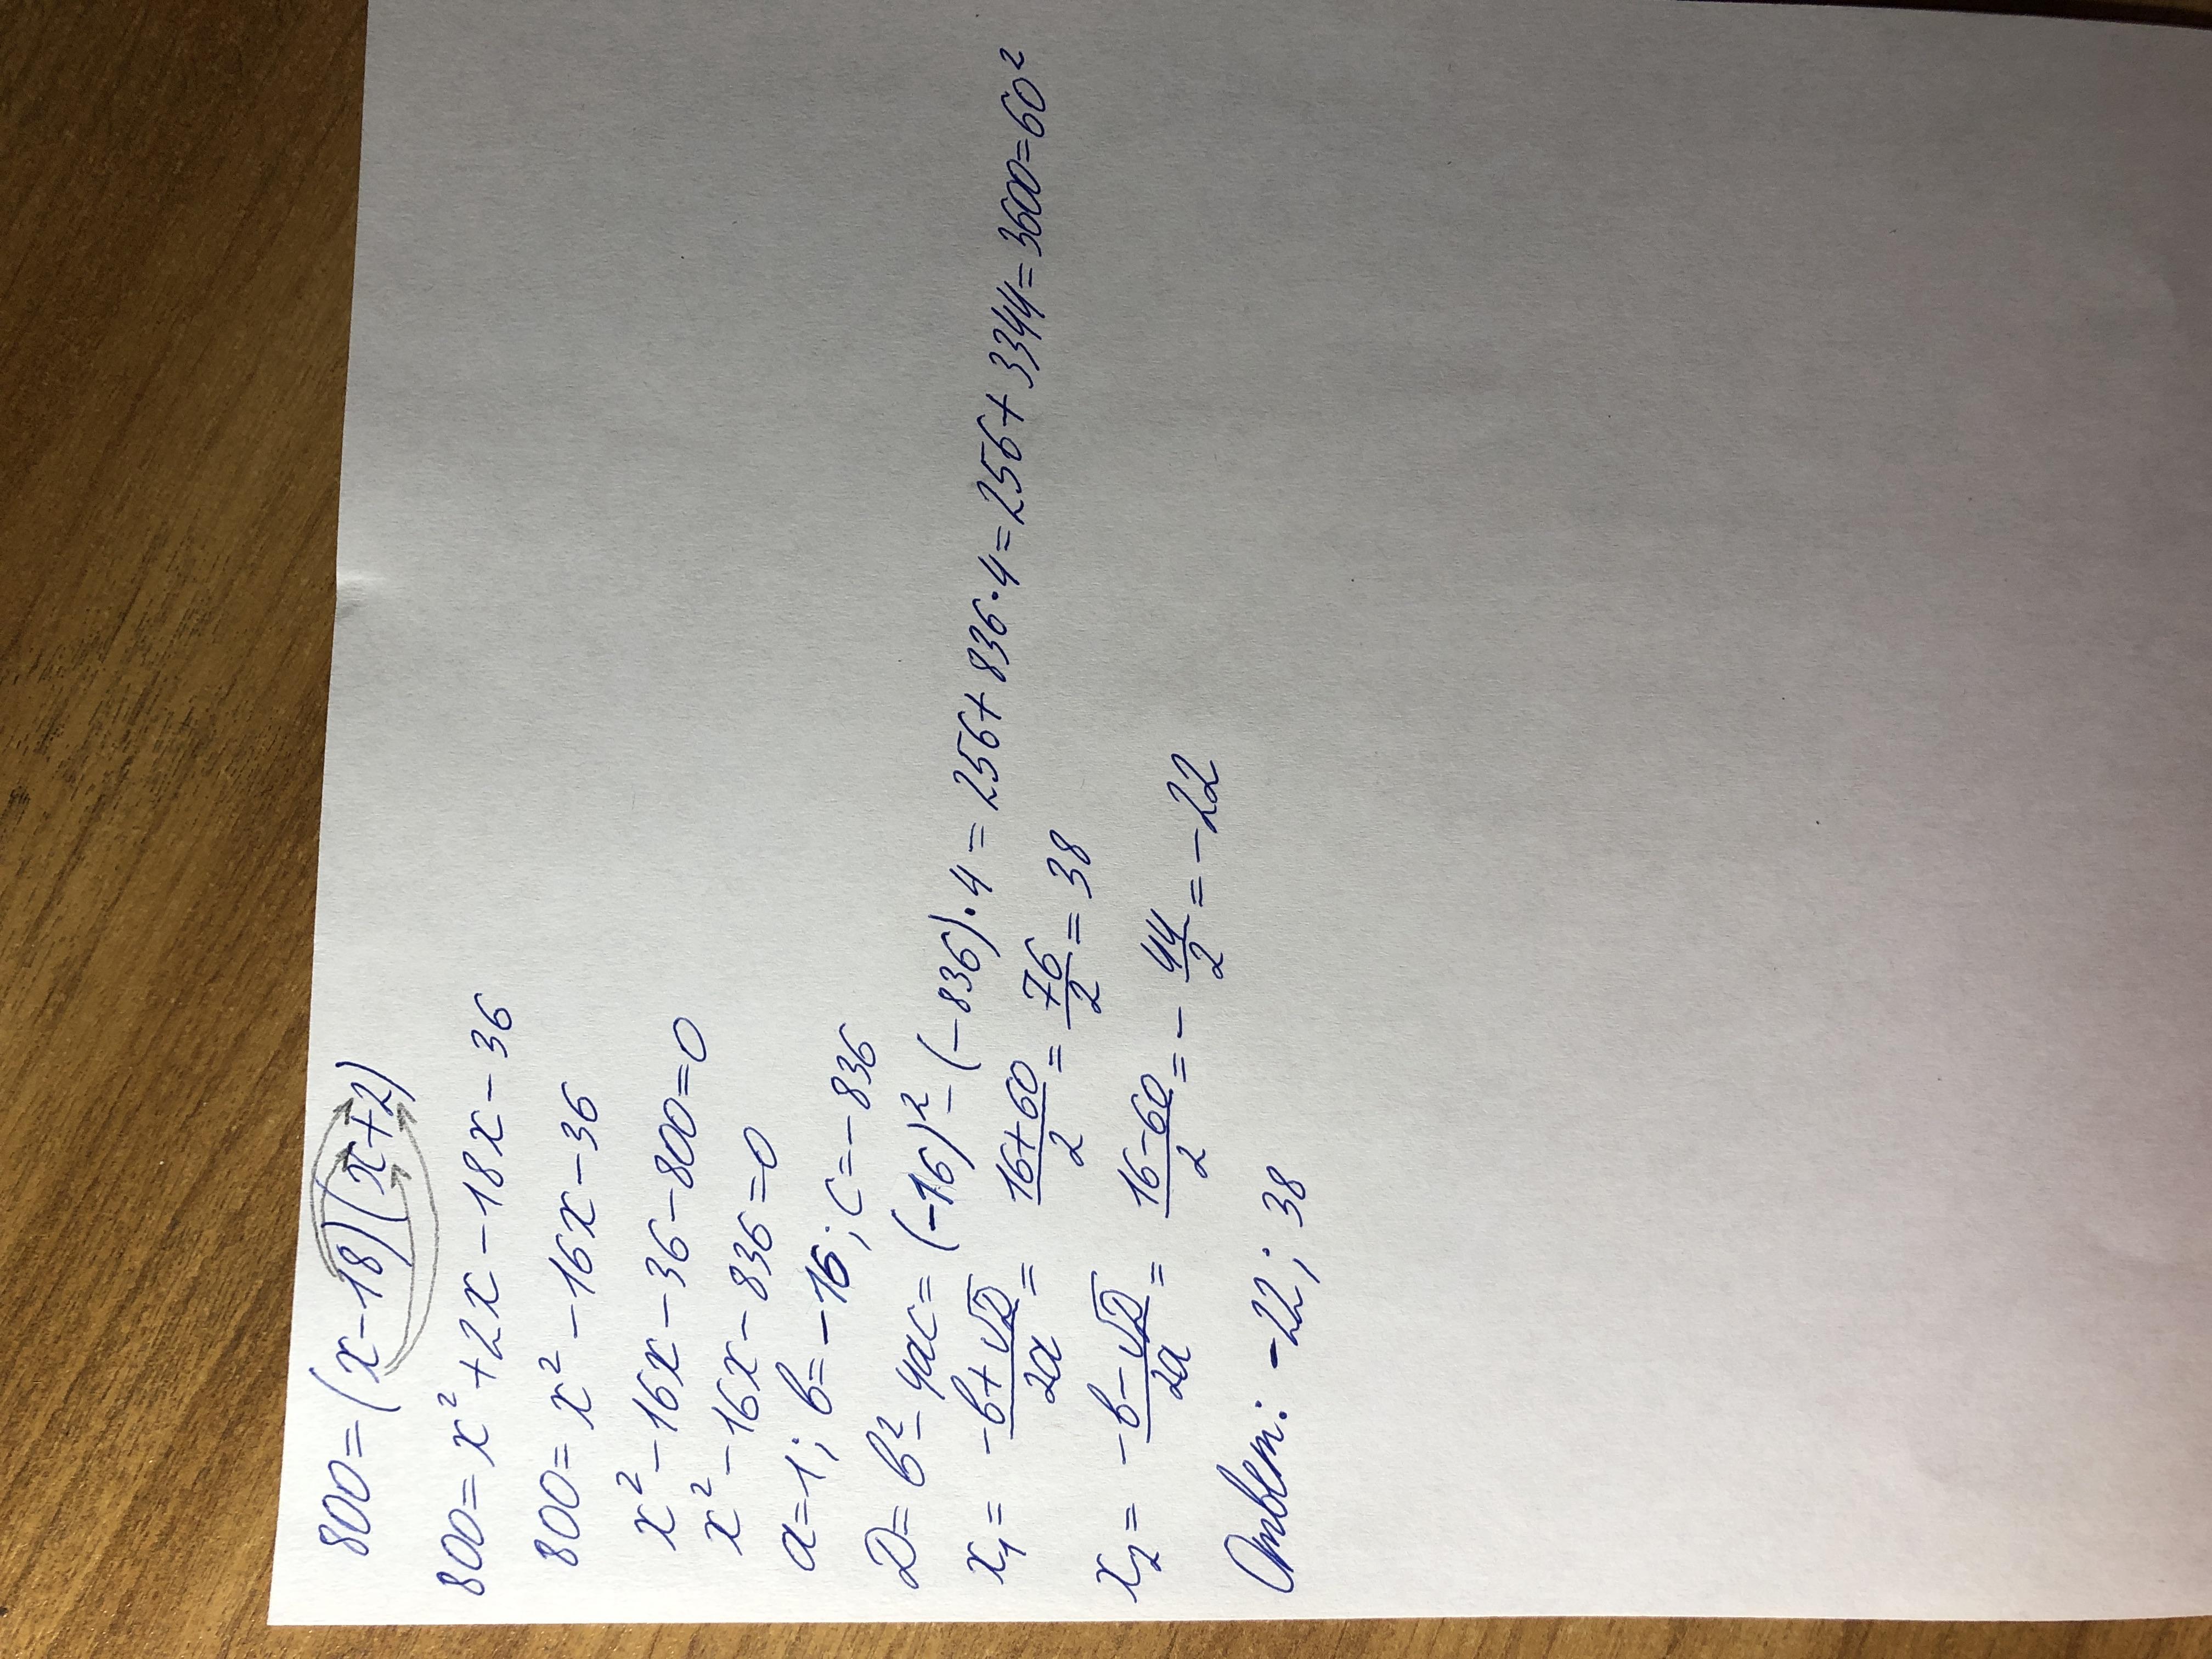 800=(x-18)(x+2)
800=x²+2x-18x-36
800=x²-16x-36
x²-16x-36-800=0
x²-16x-836=0
a=1; b=-16; c=-836
D=b²-4ac=(-16)²-(-836)·4=256+836·4=256+3344=3600=60²
x₁= (-b+√D)/2a = (16+60)/2 = 76/2 = 38
x₂= (-b-√D)/2a = (16-60)/2 = -44/2 = -22
Ответ: -22; 38